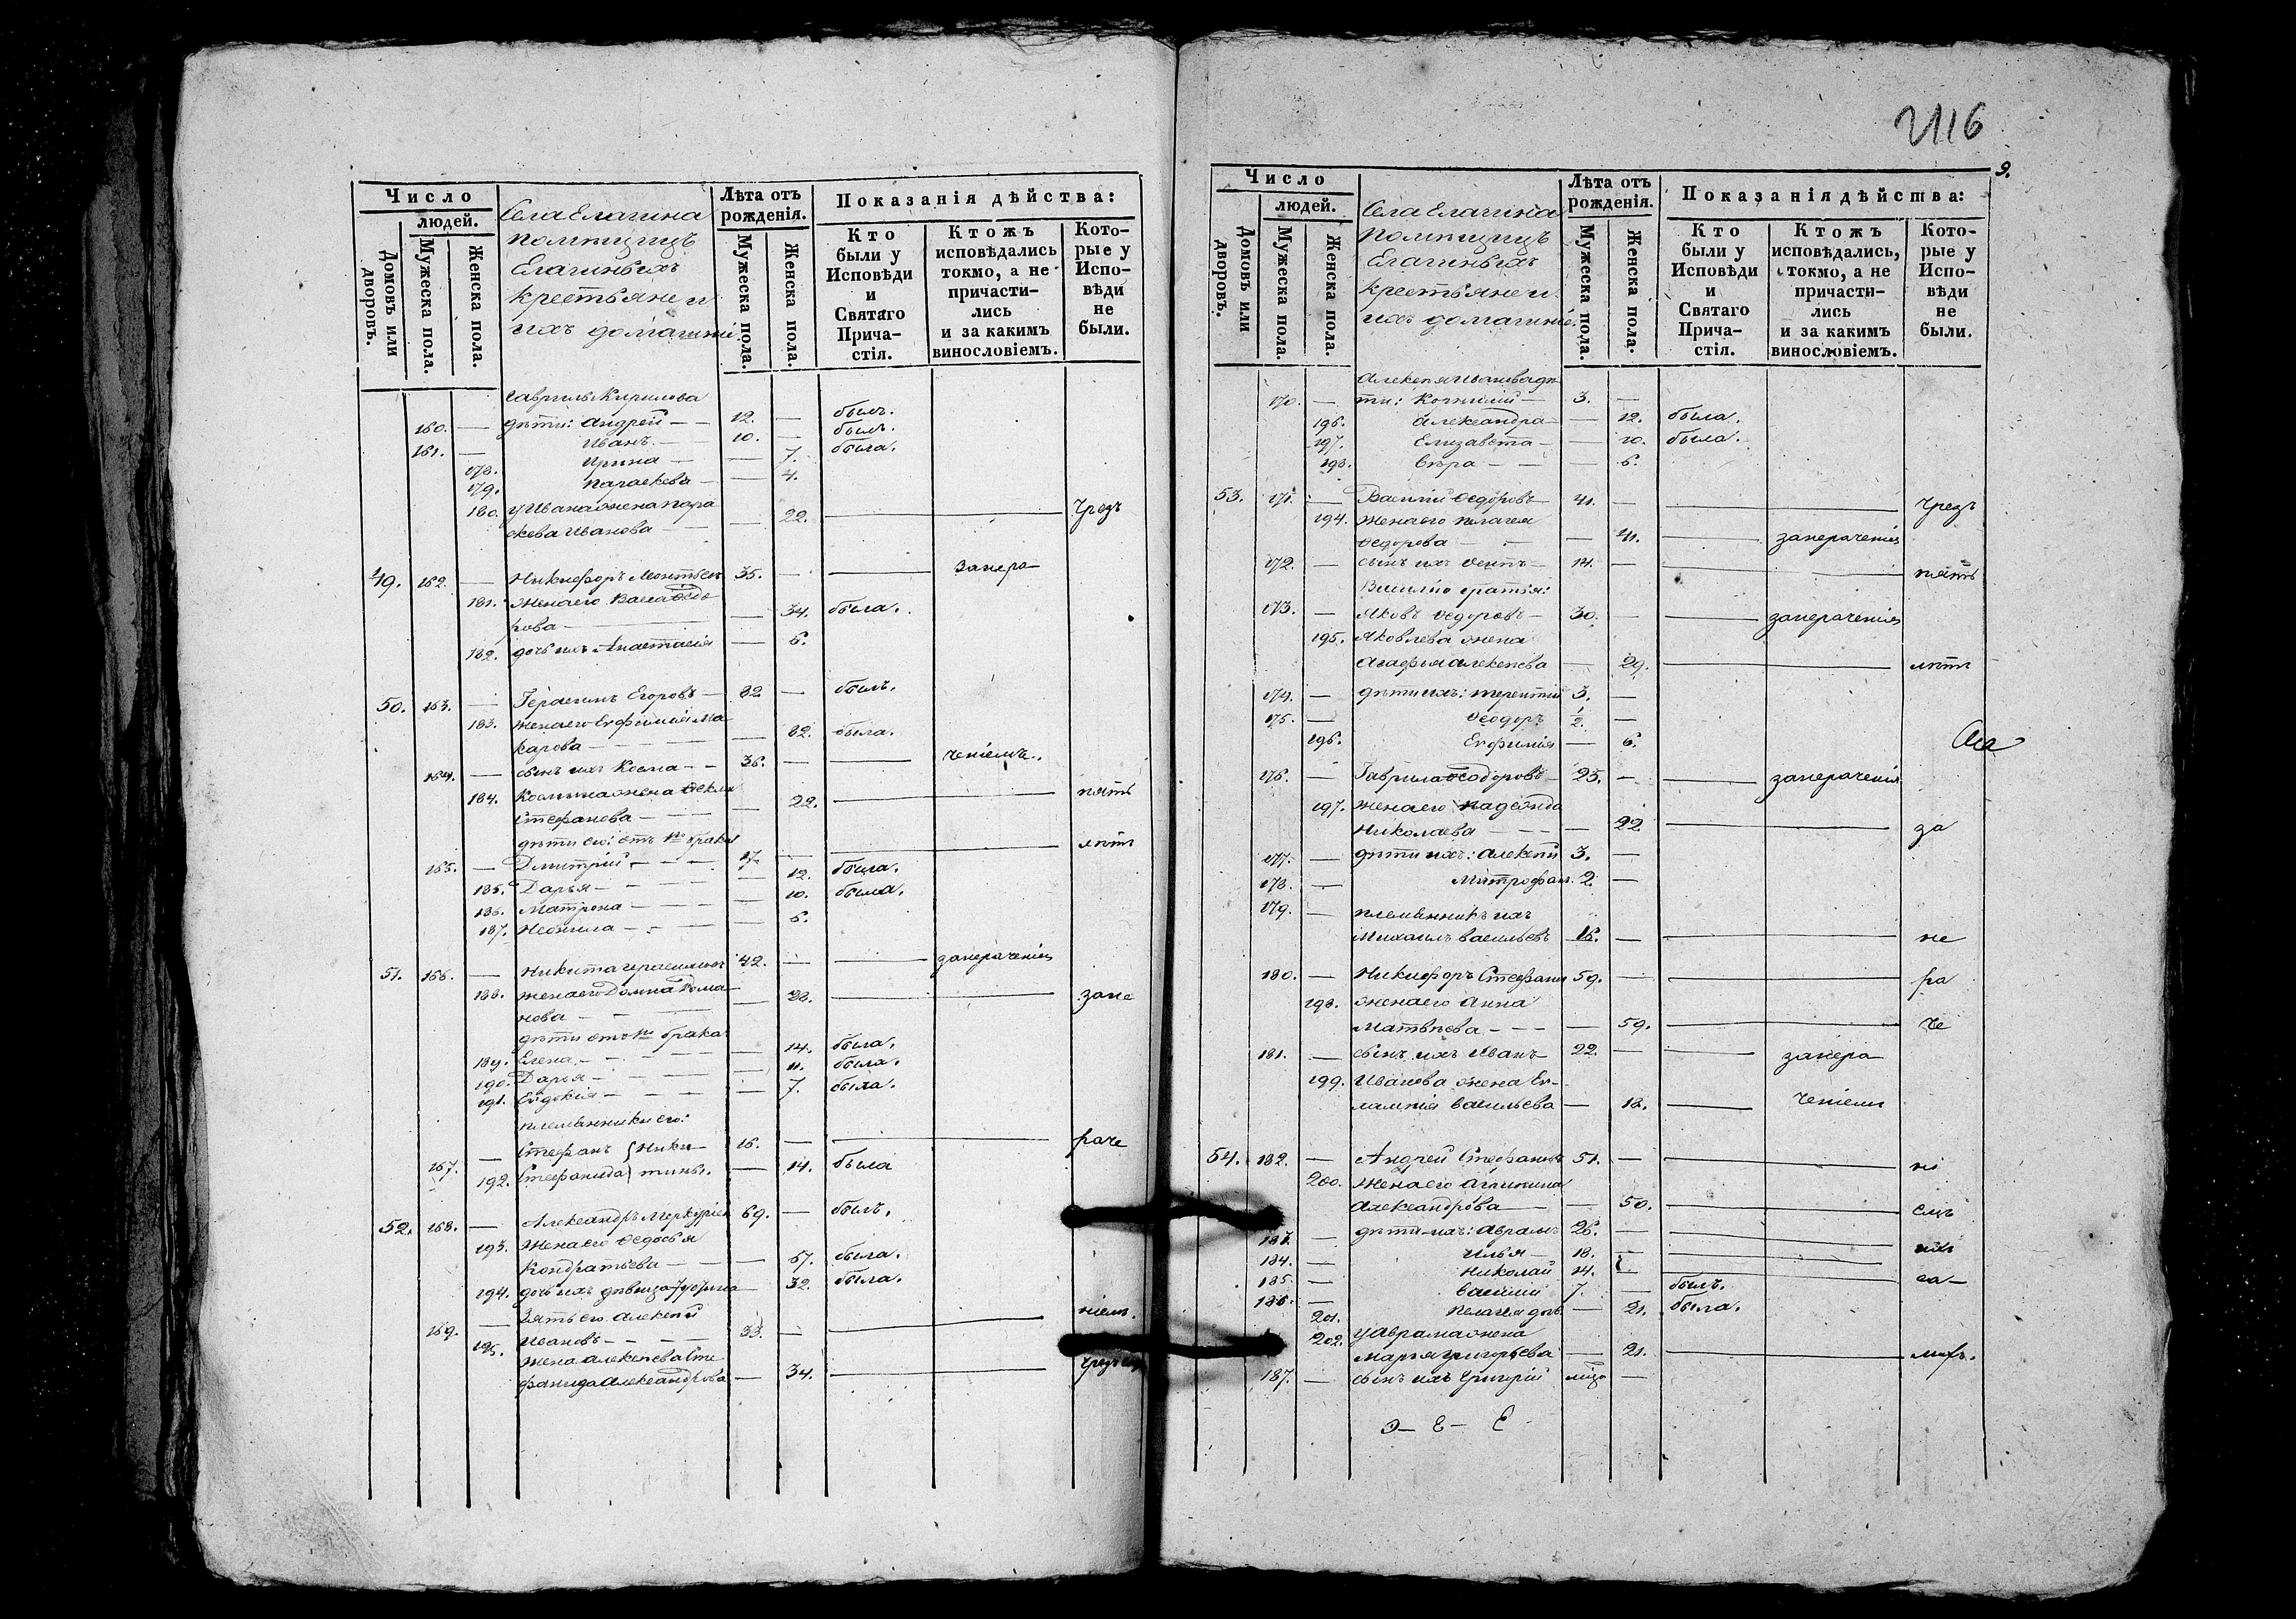 Число
людей.
Домовъ или дворовъ.
Мужеска пола.
Женска пола.
Села Елагина
помѣщицъ
Елагиныхъ
крестьяне и
ихъ домашніе.
Лѣта отъ рожденія.
Мужеска пола.
Женска пола.
Показанія дѣйства:
Кто были у Исповѣди и Святаго Причастія.
Ктожъ исповѣдались токмо, а не причастились и за какимъ винословіемъ.
Которые у Исповѣди не были.
Гаврилы Кирилова
160. — дѣти: Андрей — 12. — былъ.
161. — Иванъ — 10. — былъ.
178. Ирина — — 7. была.
179. Параскева — — 4.
180. у Ивана жена Пара
скева Иванова — — 22. — Чрезъ
49. 162. — Никифоръ 35. — — Занера
181. жена его Васса Ѳедо
рова — — 34. была.
182. дочь ихъ Анастасія — 6.
50. 163. — Герасимъ Егоровъ — 82 — былъ.
183. жена его Евфимія Ма
карова — — 82. была.
164. — сынъ ихъ Косма — 36. — — ченіемъ.
184. Космина жена Ѳекла
Стефанова — — 22. — пять
дѣти его: отъ 1го брака
165. — Димитрій — 17. — — лѣтъ
185. Дарья — — 12. была.
186. Матрона — — 10. была.
187. Неонила — — 6.
51. 166. — Никита Герасимовъ 42. — — занераченіем
188. жена его Домна Рома
нова — — 28. — зане
дѣти отъ 1го брака:
189. Елена — — 14. была.
190. Дарья — — 11. была.
191. Евдокія — — 7. была.
племянники его:
167. — Стефанъ } Ники— 16. — — раче
192. Стефанида } тины. — 14. была
52. 168. — Александръ Меркурьев 69. — былъ.
193. жена его Ѳедосья
Кондратьева — — 67. была.
194. дочь ихъ дѣвица — 32. была.
169. — Зять его Алексѣй
Ивановъ — 33. — — ніем.
195. жена Алексѣева Сте
фанида Александрова — 34. — чрезъ
2116
9.
Число
людей.
Домовъ или дворовъ.
Мужеска пола.
Женска пола.
Села Елагина
помѣщицъ
Елагиныхъ
крестьяне и
ихъ домашніе.
Лѣта отъ рожденія.
Мужеска пола.
Женска пола.
Показанія дѣйства:
Кто были у Исповѣди и Святаго Причастія.
Ктожъ исповѣдались, токмо, а не причастились и за какимъ винословіемъ.
Которые у Исповѣди не были.
Алексѣя Иванова дѣ
170. — ти: 3. —
196. Александра — — 12. была.
197. Елизавета — — 10. была.
198. Вѣра — — 6.
53. 171. — Василій Ѳедоровъ 41. — — Чрезъ
194. жена его Пелагея
Ѳедорова — — 41. — занераченіем
172. — сынъ ихъ 14. — — пять
Василію братья:
173. — Яковъ Ѳедоровъ — 30. — — занераченіем
195. Яковлева жена
Агафья Алексѣева — 29. — лѣтъ
174. — дѣти ихъ: Терентій 3. —
175. — Ѳеодоръ ½. —
196. Евфимія — 6.
176. — Гаврила Ѳеодоровъ 25. — — занераченіем
197. жена его Надежда
Николаева — — 22 — за
177. — дѣти ихъ: Алексѣй 3. —
178. — Митрофан. 2. —
179. — племянникъ ихъ
Михаилъ Васильевъ 16. — — не
180. — Никифоръ Стефанов 59. — — ра
198. жена его Анна
Матвѣева — — 59. — че
181. — сынъ ихъ Иванъ 22. — — занера
199. Иванова жена Ев—
лампія Васильева — 18. — ченіем
54. 182. — Андрей Стефановъ 51. — — ні
200. жена его Агрипина
Александрова — — 50. — емъ
183. — дѣти ихъ: Аврамъ 26. —
184. — Илья — 18. — — ихъ
185. — Николай 14. — — са—
186. — Василій 7. — былъ.
201. Пелагея дѣв. — 21. была.
202. у Аврама жена
Марья Григорьева — 21. — михъ.
187. — сынъ ихъ Григорій —
Э— Е— Е